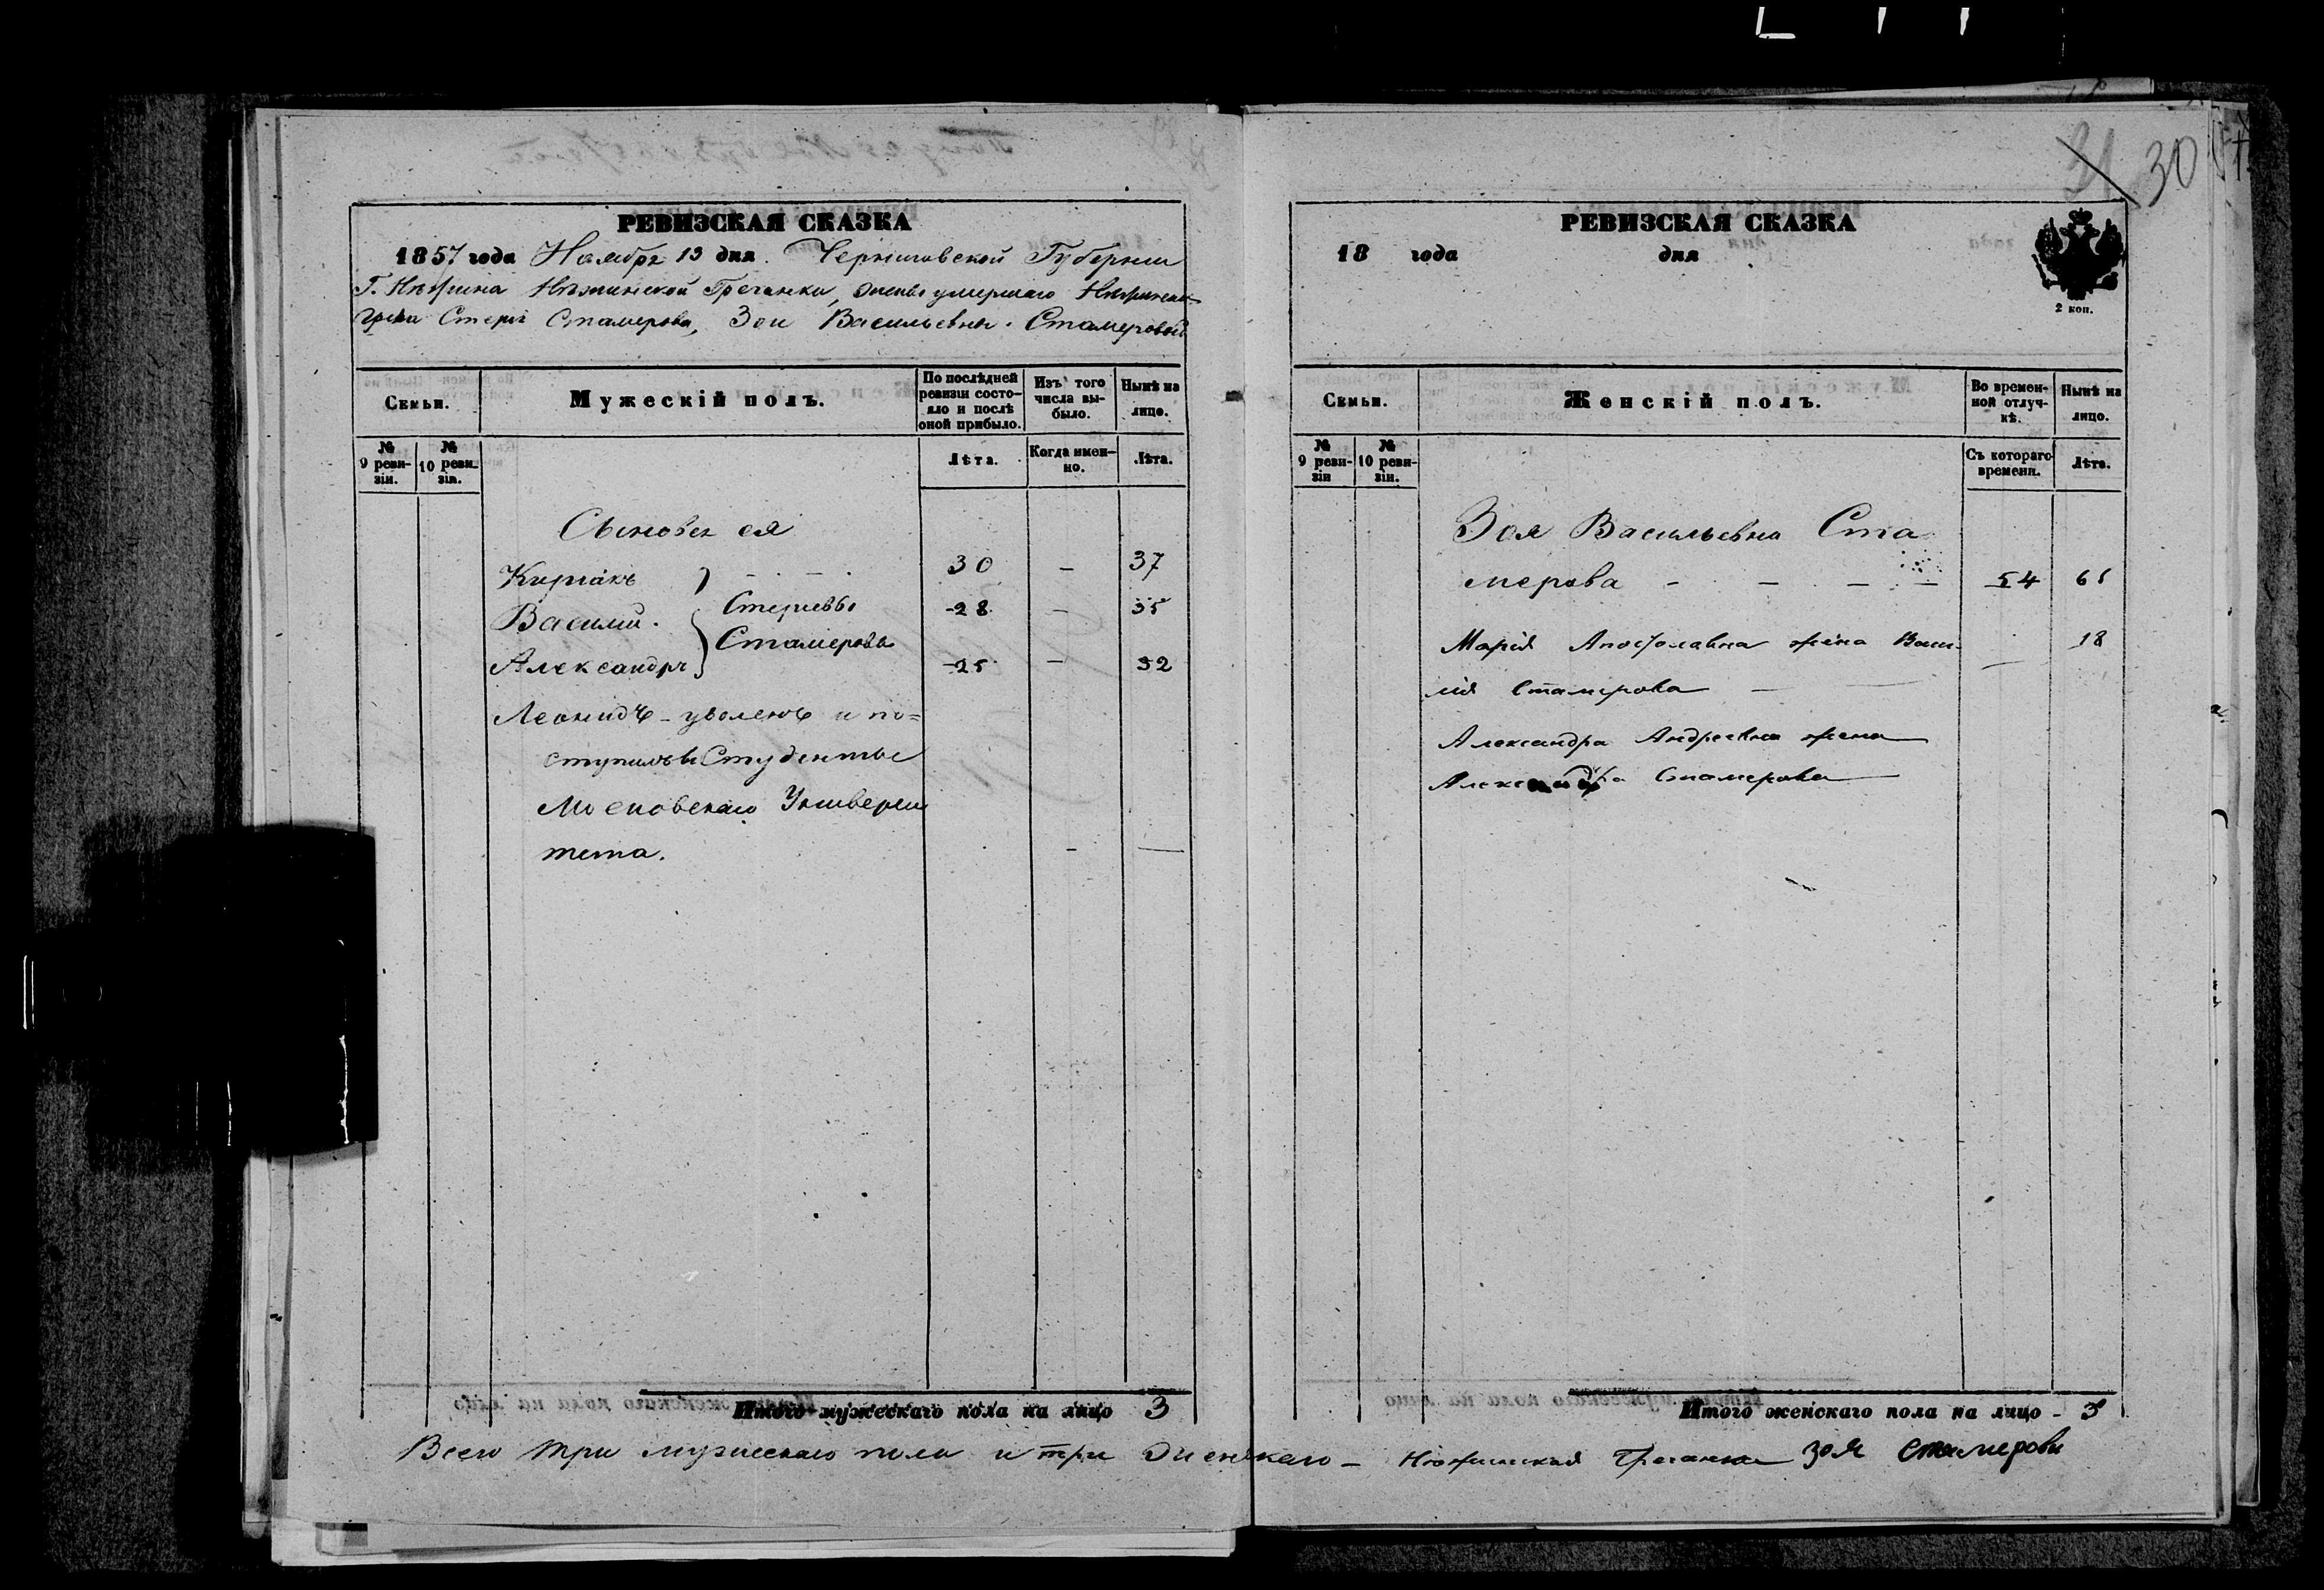 31 30
РЕВИЗСКАЯ СКАЗКА
1857 года Ноября 13 дня. Черниговской Губернии
Г. Нѣжина Нѣжинской Гречанки, жены умершаго Нѣжинск.
Грека Стерія Стамерова, Зои Васильевны Стамеровой
Семьи.
Мужескій полъ.
По послѣдней ревизіи состояло и послѣ оной прибыло.
Изъ того числа выбыло.
Нынѣ на лицо.
№ 9 ревизіи.
№ 10 ревизіи.
Лѣта.
Когда именно.
Лѣта.
Сыновья ея
Киріакъ 30 — 37
Василій. Стеріевы 28 — 35
Стамеровы
Александръ 25 — 32
Леонидъ - уволенъ и по=
ступилъ въ Студенты
Московскаго Универси
тета. — —
Итого мужескаго пола на лицо 3
РЕВИЗСКАЯ СКАЗКА
18 года дня
2 коп.
Семьи.
Женскій полъ.
Во временной отлучкѣ.
Нынѣ на лицо.
№ 9 ревизіи
№ 10 ревизіи.
Съ котораго времени.
Лѣта.
Зоя Васильевна Ста
мерова - — — — 54 61
Марія Апостоловна жена Васи- 18
лія Стамерова — —
Александра Андреевна жена
Александра Стамерова
Итого женскаго пола на лицо - 3
Всего три мужескаго пола и три женскаго — Нѣжинская Гречанка Зоя Стамерова